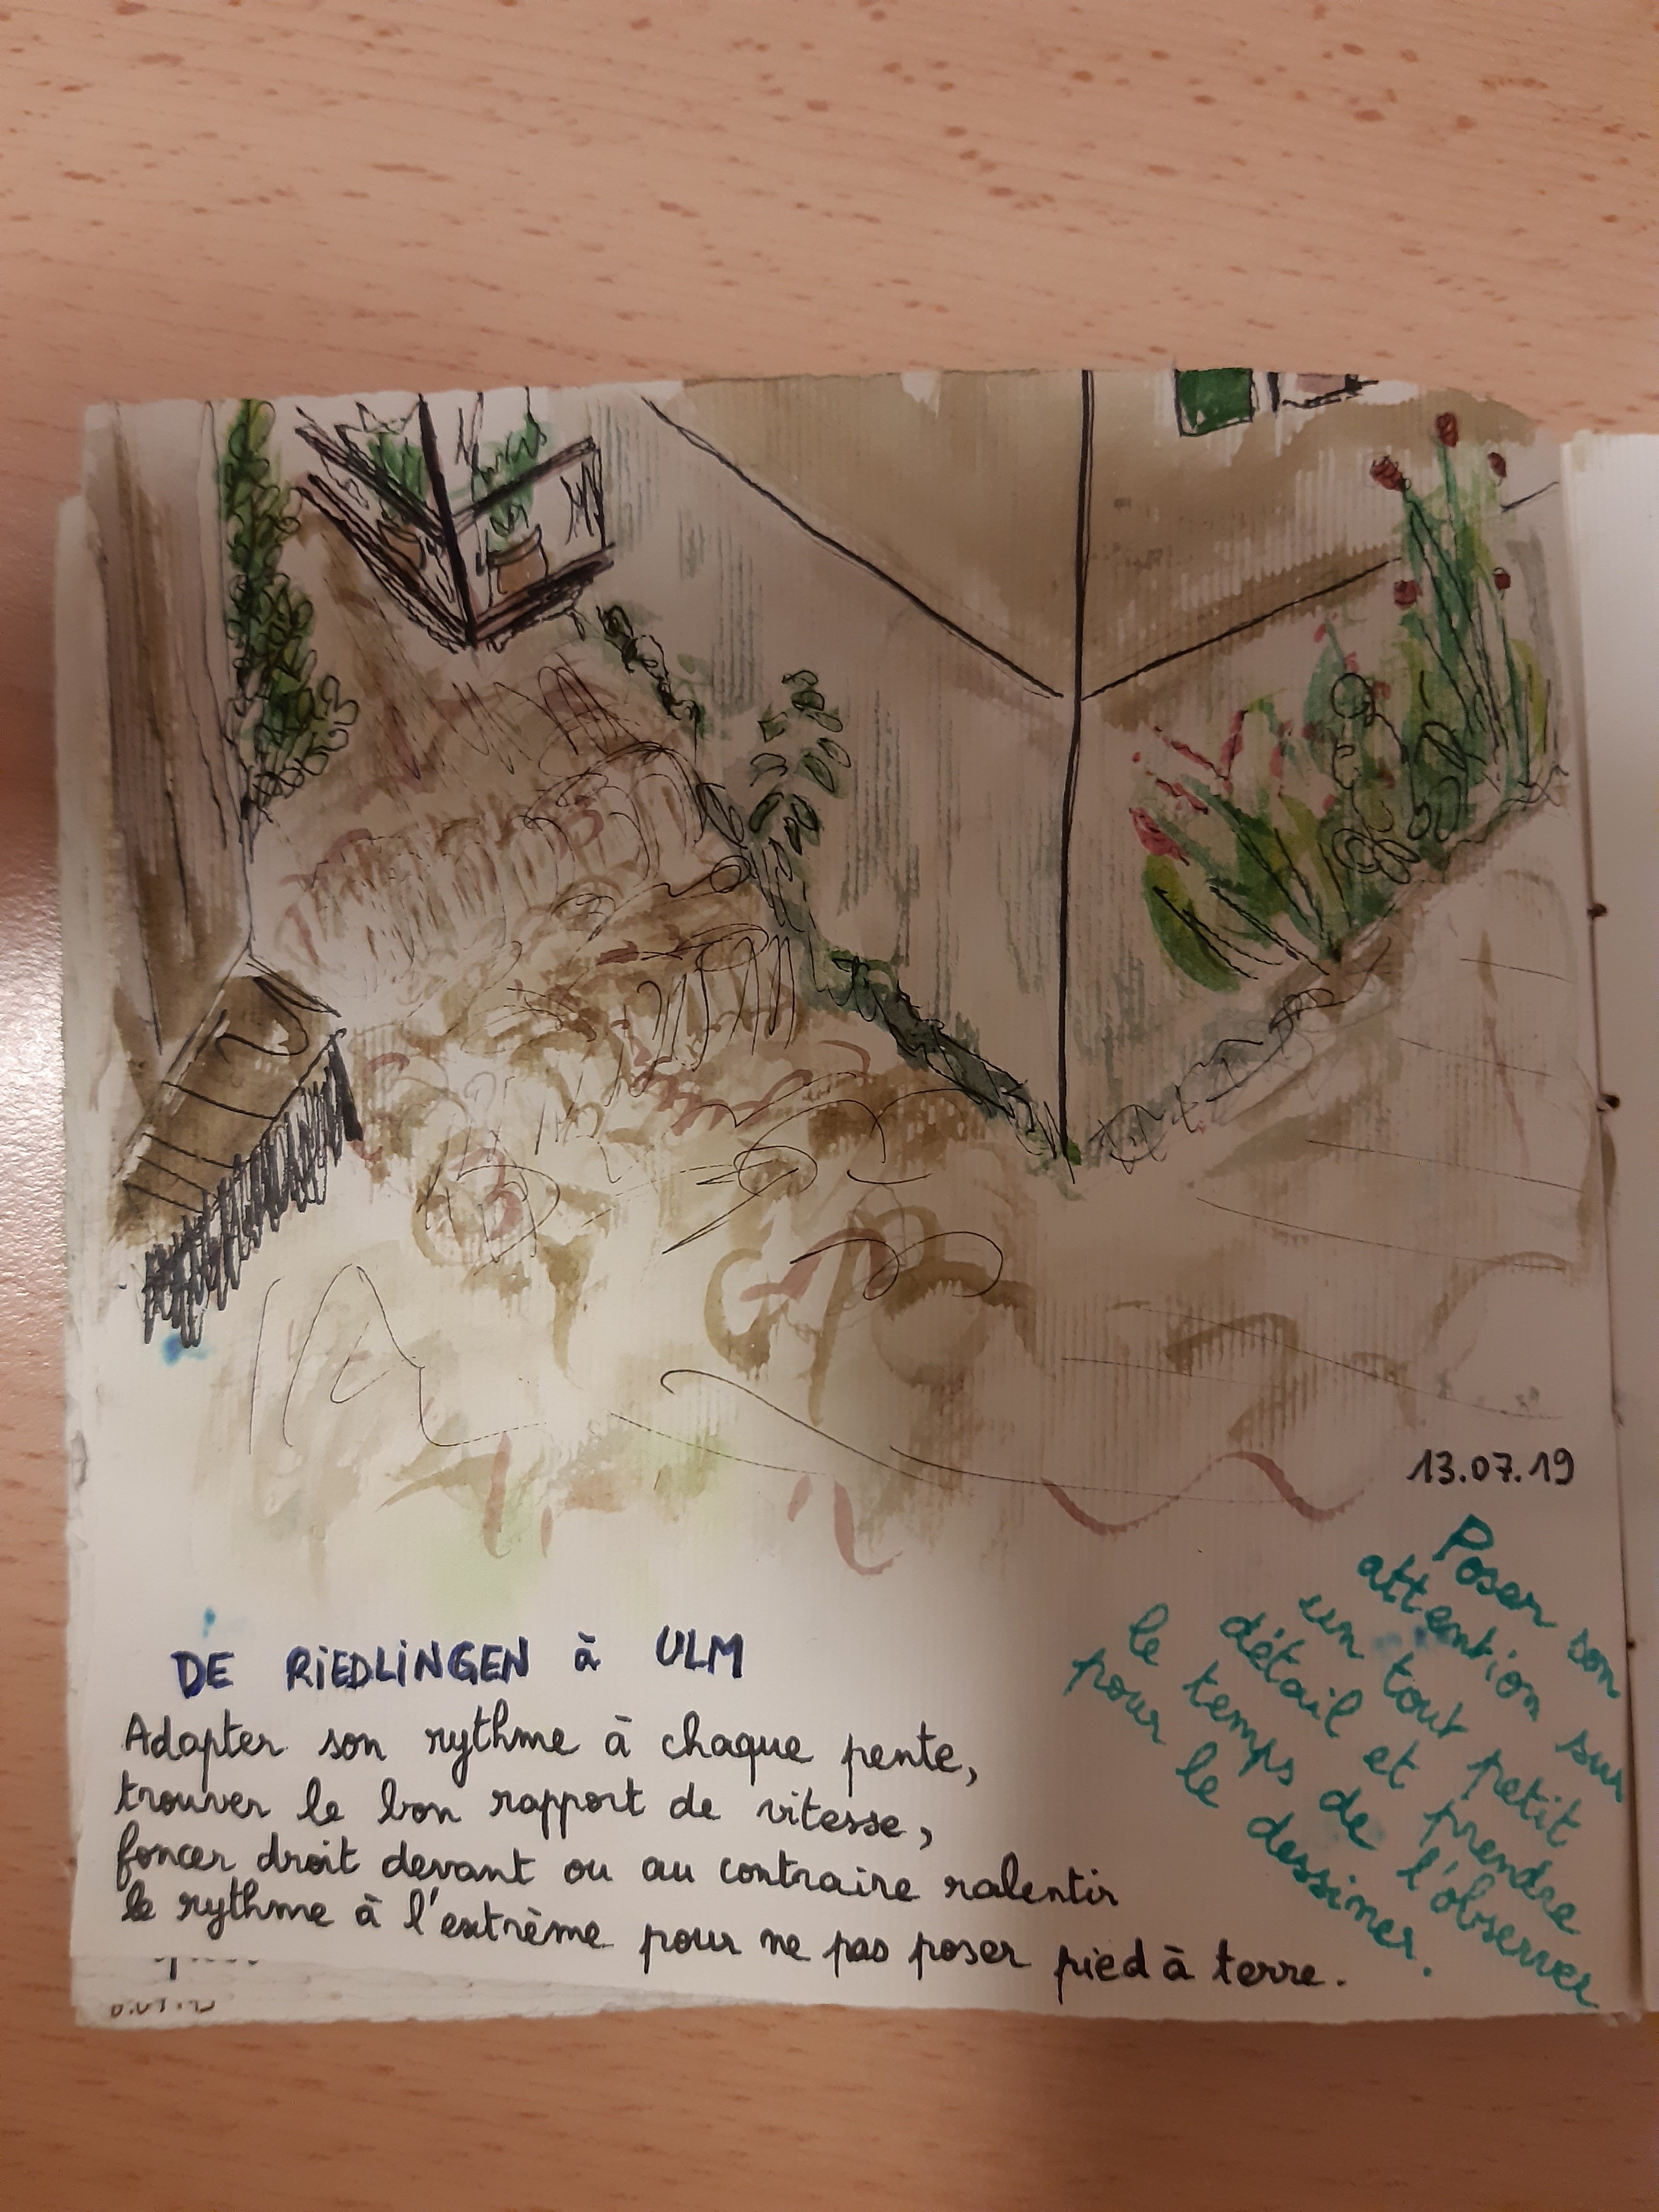 13.07.19
Poser son
attention sur
un tout petit
détail et prendre
le temps de l'observer
pour le dessiner.
DE RIEDLINGEN à ULM
Adapter son rythme à chaque pente,
trouver le bon rapport de vitesse,
foncer droit devant ou au contraire ralentir
le rythme à l'extrème pour ne pas poser pied à terre.